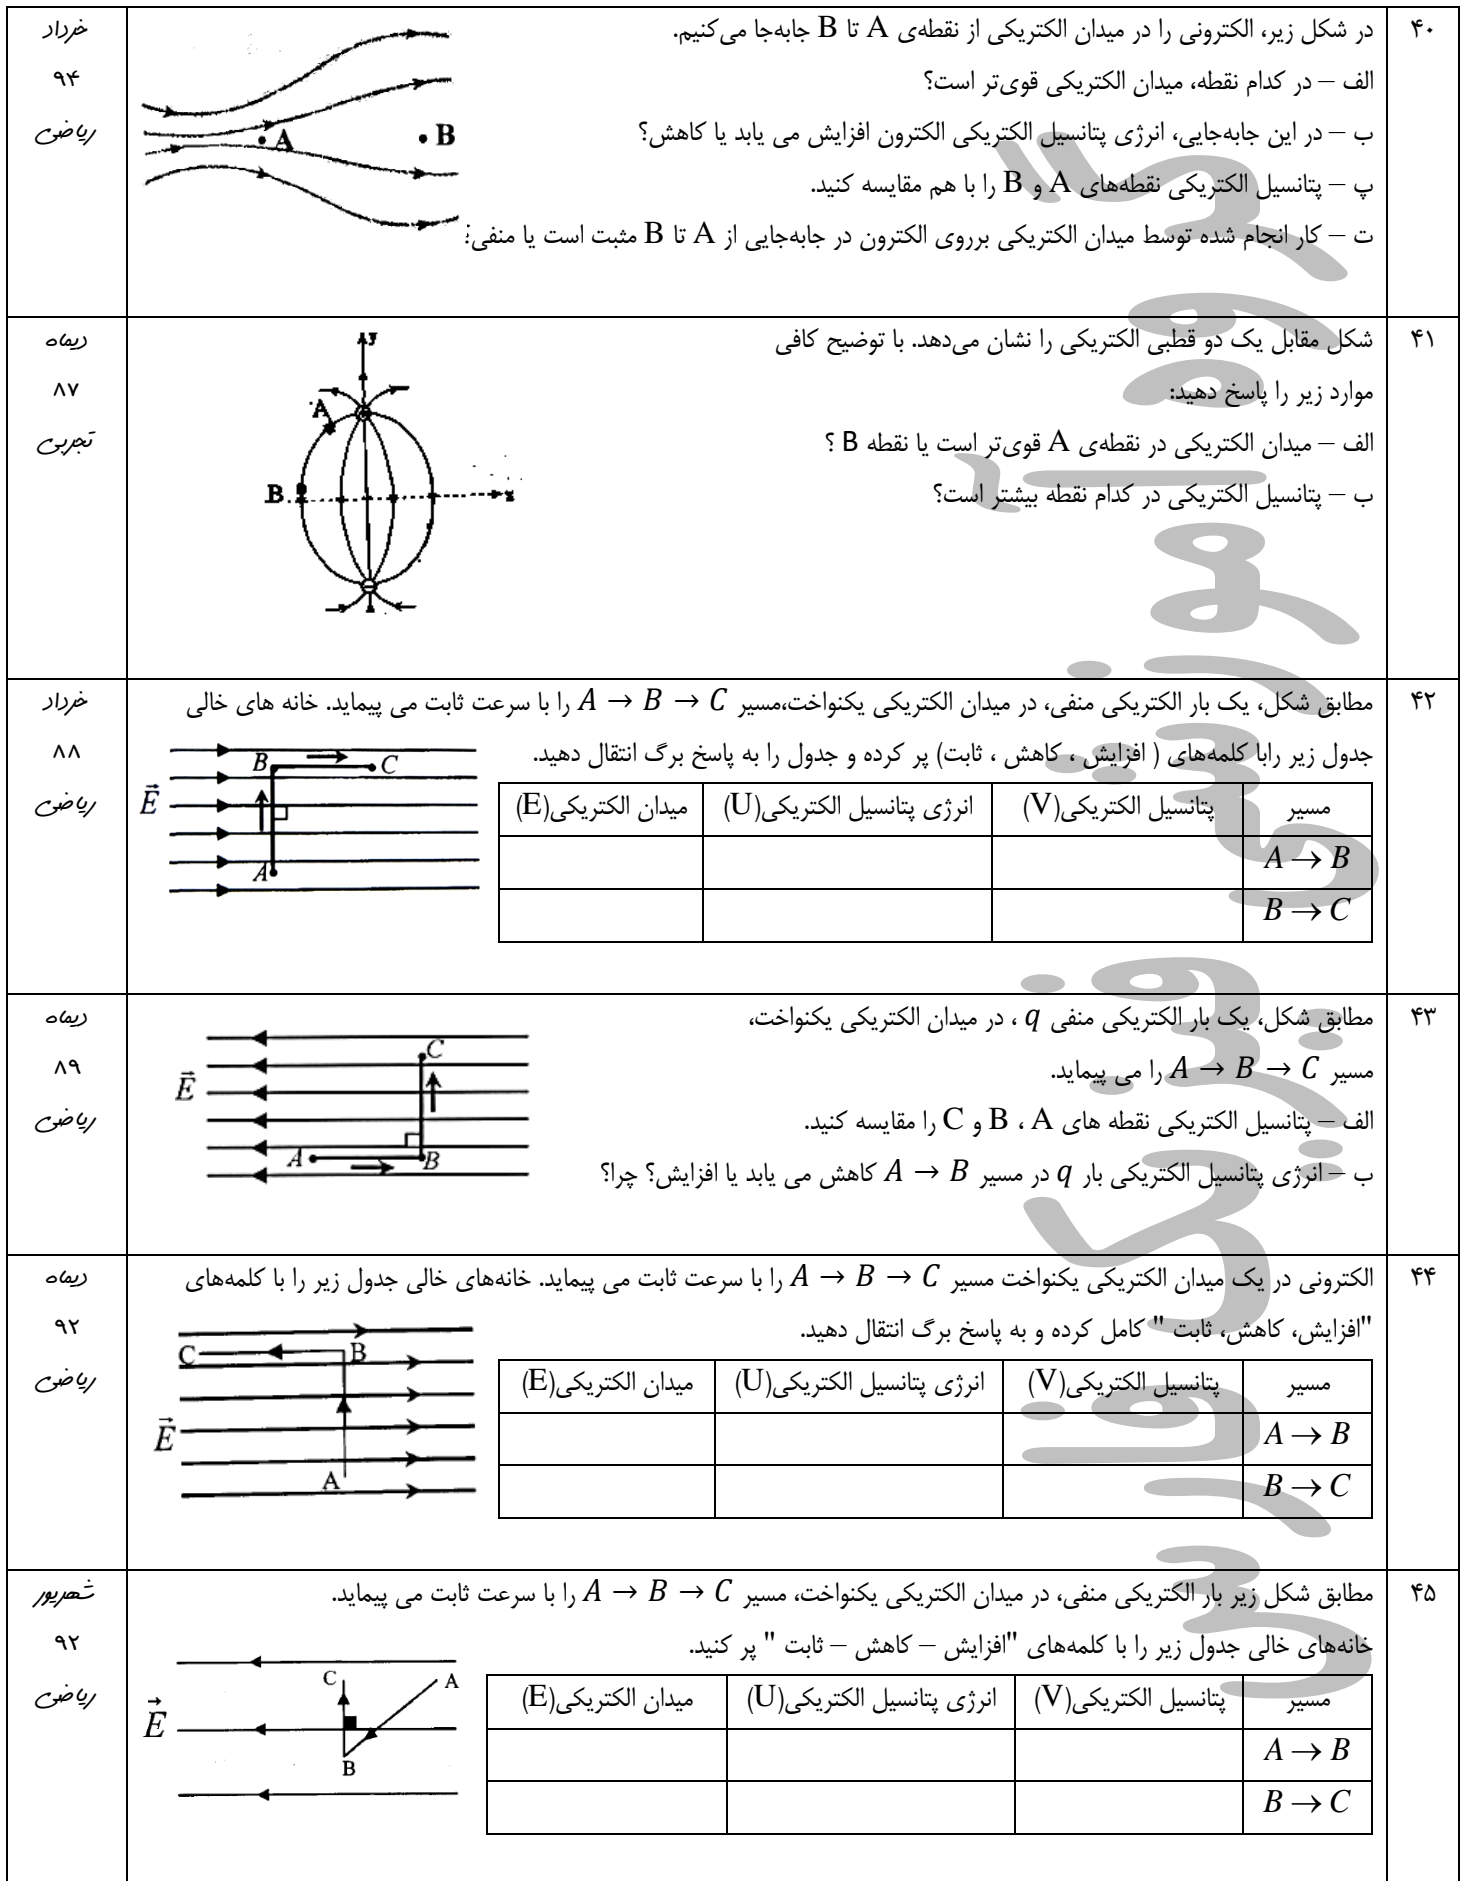 ۴۰
در شکل زیر، الکترونی را در میدان الکتریکی از نقطه‌ی A تا B جابه‌جا می‌کنیم.
الف – در کدام نقطه، میدان الکتریکی قوی‌تر است؟
ب – در این جابه‌جایی، انرژی پتانسیل الکتریکی الکترون افزایش می یابد یا کاهش؟
پ – پتانسیل الکتریکی نقطه‌های A و B را با هم مقایسه کنید.
ت – کار انجام شده توسط میدان الکتریکی برروی الکترون در جابه‌جایی از A تا B مثبت است یا منفی؟
A
B
خرداد
۹۴
ریاضی
۴۱
شکل مقابل یک دو قطبی الکتریکی را نشان می‌دهد. با توضیح کافی
موارد زیر را پاسخ دهید:
الف – میدان الکتریکی در نقطه‌ی A قوی‌تر است یا نقطه B ؟
ب – پتانسیل الکتریکی در کدام نقطه بیشتر است؟
y
A
B
x
دیماه
۸۷
تجربی
۴۲
مطابق شکل، یک بار الکتریکی منفی، در میدان الکتریکی یکنواخت،مسیر A → B → C را با سرعت ثابت می پیماید. خانه های خالی
جدول زیر رابا کلمه‌های ( افزایش ، کاهش ، ثابت) پر کرده و جدول را به پاسخ برگ انتقال دهید.
مسیر پتانسیل الکتریکی(V) انرژی پتانسیل الکتریکی(U) میدان الکتریکی(E)
A → B
B → C
B C
E
A
خرداد
۸۸
ریاضی
۴۳
مطابق شکل، یک بار الکتریکی منفی q ، در میدان الکتریکی یکنواخت،
مسیر A → B → C را می پیماید.
الف – پتانسیل الکتریکی نقطه های A ، B و C را مقایسه کنید.
ب – انرژی پتانسیل الکتریکی بار q در مسیر A → B کاهش می یابد یا افزایش؟ چرا؟
C
E
A B
دیماه
۸۹
ریاضی
۴۴
الکترونی در یک میدان الکتریکی یکنواخت مسیر A → B → C را با سرعت ثابت می پیماید. خانه‌های خالی جدول زیر را با کلمه‌های
"افزایش، کاهش، ثابت " کامل کرده و به پاسخ برگ انتقال دهید.
مسیر پتانسیل الکتریکی(V) انرژی پتانسیل الکتریکی(U) میدان الکتریکی(E)
A → B
B → C
C B
E
A
دیماه
۹۲
ریاضی
۴۵
مطابق شکل زیر بار الکتریکی منفی، در میدان الکتریکی یکنواخت، مسیر A → B → C را با سرعت ثابت می پیماید.
خانه‌های خالی جدول زیر را با کلمه‌های "افزایش – کاهش – ثابت " پر کنید.
مسیر پتانسیل الکتریکی(V) انرژی پتانسیل الکتریکی(U) میدان الکتریکی(E)
A → B
B → C
C A
E
B
شهریور
۹۲
ریاضی